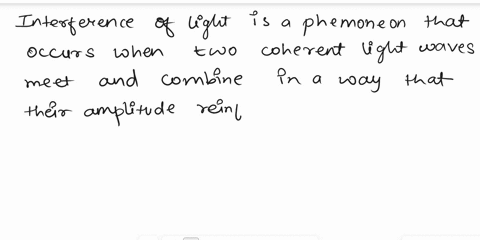 Interference of light is a phemoneon that
occurs when two coherent light waves
meet and combine in a way that
their amplitude reinf